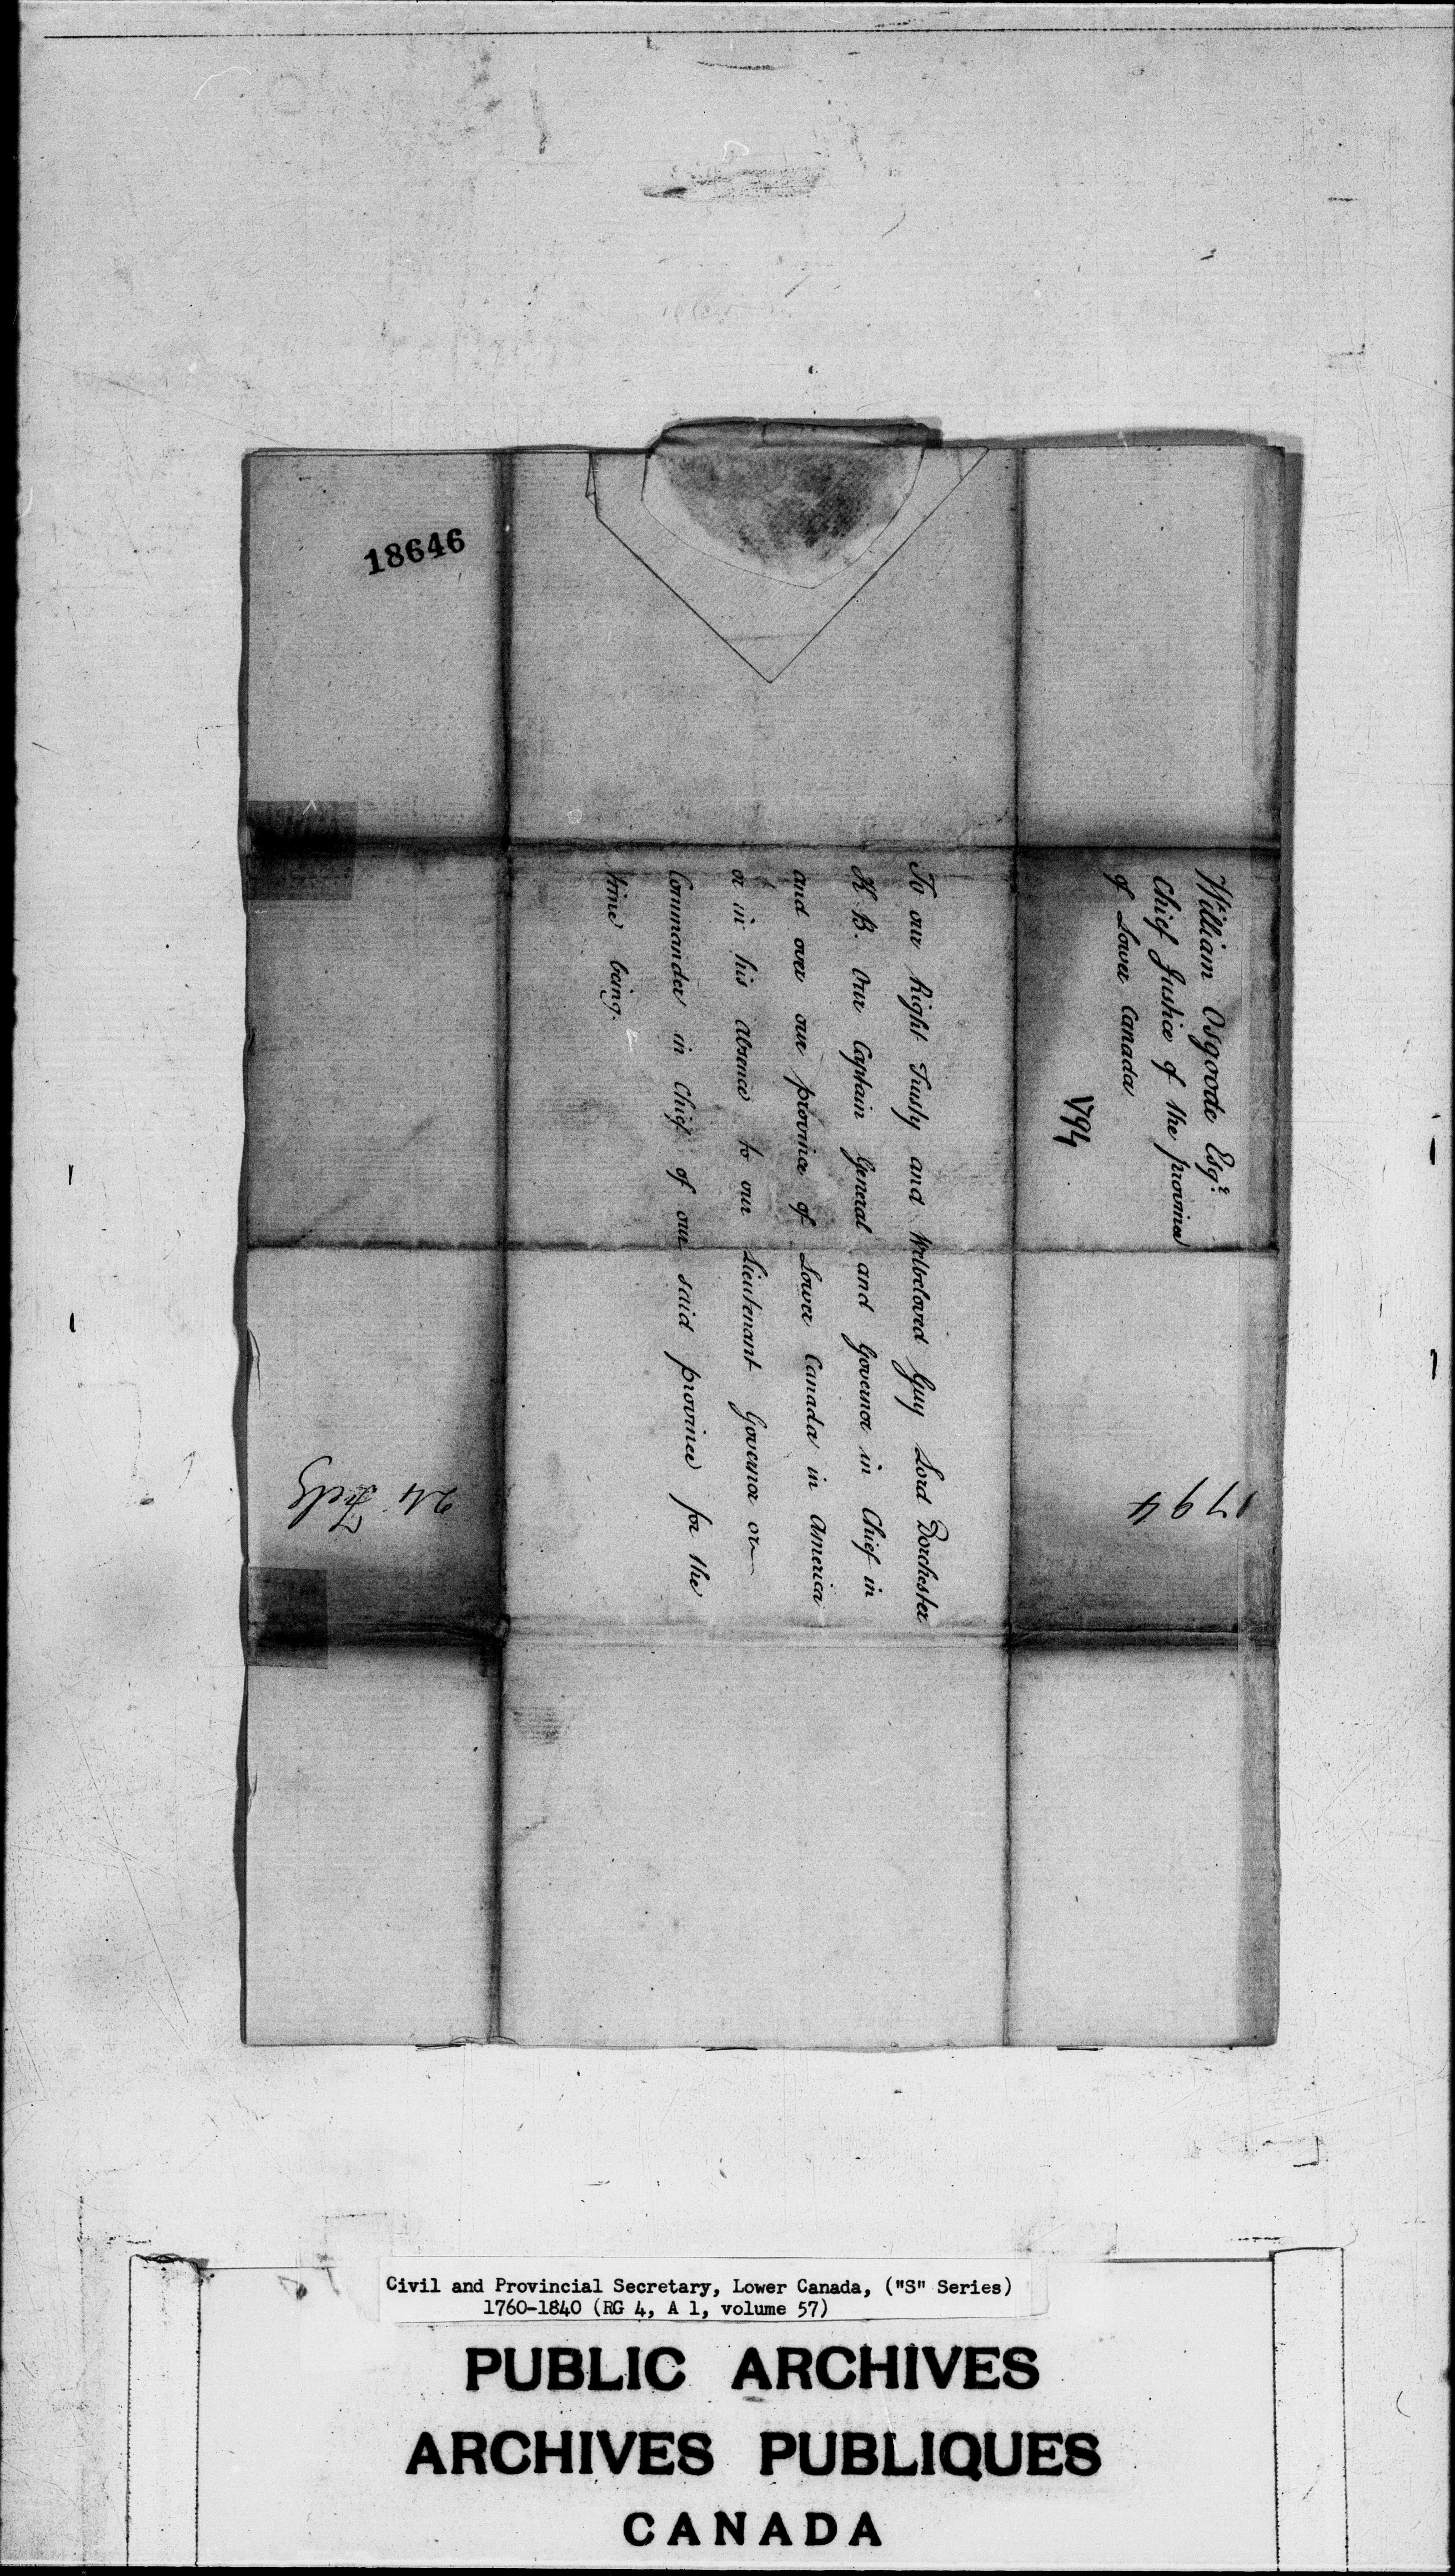 18646
William Osgoode Esqr.
Chief Justice of the province
of Lower Canada
1794
To our Right Trusty and Welbeloved Guy Lord Dorchester
K. B. Our Captain General and Governor in Chief in
and over our province of Lower Canada in America
or in his absence to our Lieutenant Governor or
Commander in Chief of our said province for the
time being.
1794
24 Feby
Civil and Provincial Secretary, Lower Canada, ("S" Series)
1760-1840 (RG 4, A 1, volume 57)
PUBLIC ARCHIVES
ARCHIVES PUBLIQUES
CANADA